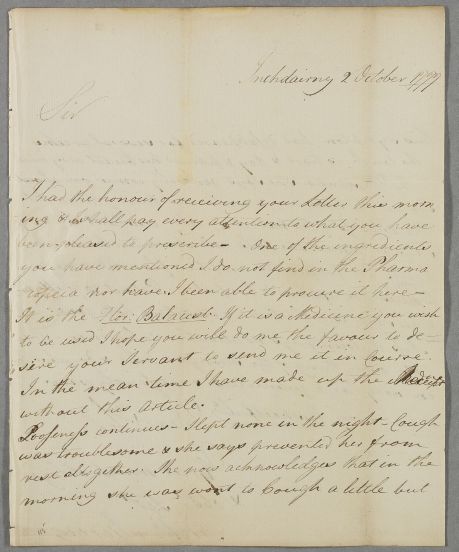 Inchdairny 2 October 1777
Sir
I had the honour of receiving your Letter this morn
ing & shall pay every attention to what you have
been pleased to prescribe - One of the ingredients
you have mentioned I do not find in the Pharma
copoeia nor have I been able to procure it here -
It is the Flor: Balaust. If it is a Medicine you wish
to be used I hope you will do me the favour to de-
sire your Servant to send me it in course.
In the mean time I have made up the Receipt
without this Article.
Looseness continues - Slept none in the night - Cough
was troublesome & she says prevented her from
rest altogether. She now acknowledges that in the
morning she was wont to Cough a little but